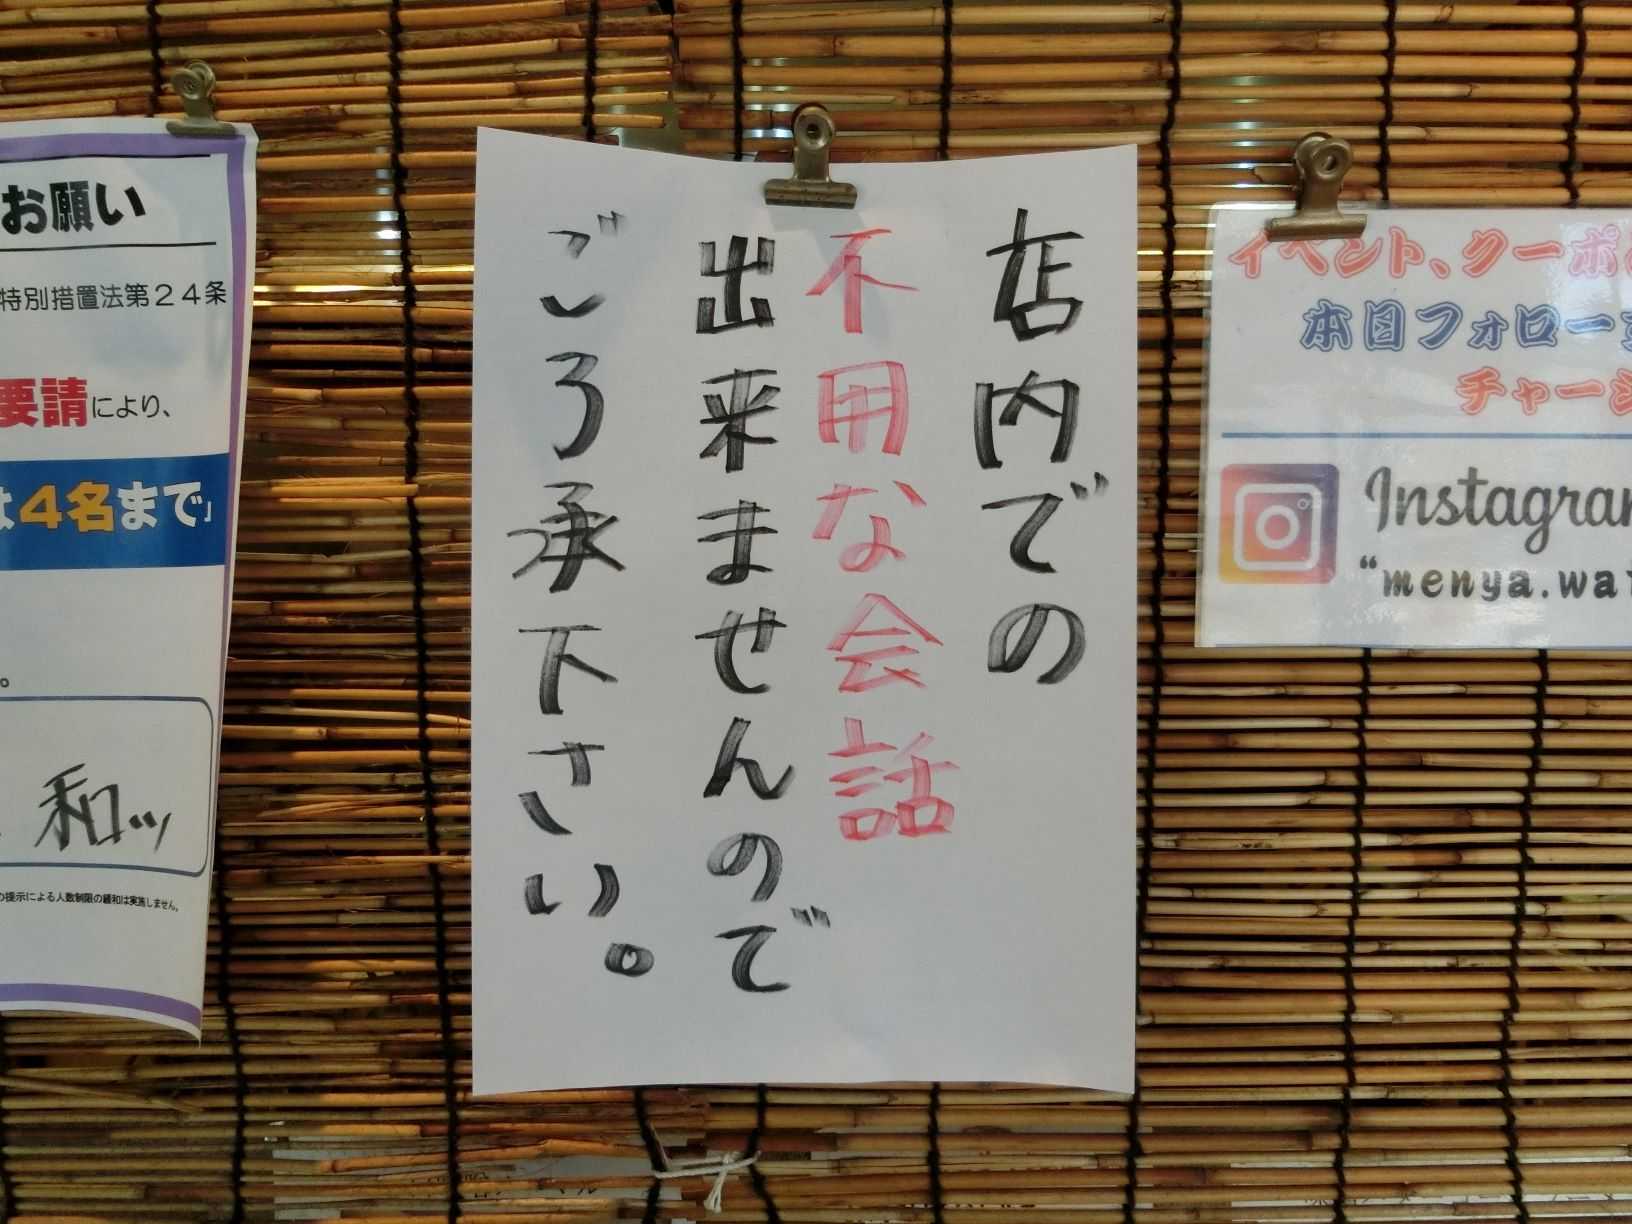 お願い
特別措置法第24条
要請により、
は4名まで」
。
和ッ
の提示による人数制限の緩和は実施しません。
店内での
不用な会話
出来ませんので
ごろ承下さい。
イベント、クーポ
本日フォロー
チャージ
Instagram
"menya.wa